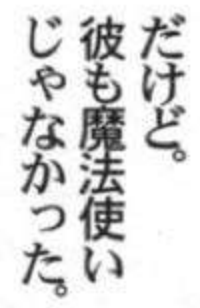 だけど。
彼も魔法使い
じゃなかった。